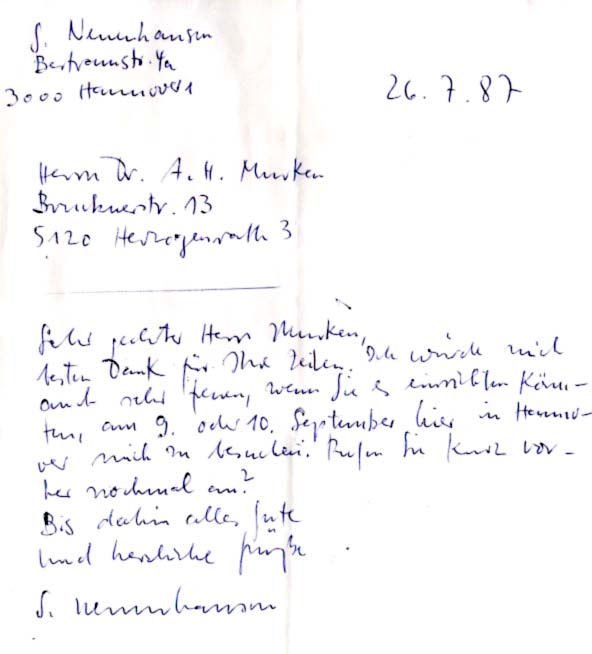 S. Neuenhausen
Bertramstr. 4a
3000 Hannover 1
26.7.87
Herrn Dr. A. H. Murken
Brucknerstr. 13
5120 Herzogenrath 3
Sehr geehrter Herr Murken,
besten Dank für Ihre Zeilen. Ich würde mich
auch sehr freuen, wenn Sie es einrichten könn-
ten, am 9. oder 10. September hier in Hanno-
ver mich zu besuchen. Rufen Sie kurz vor-
her nochmal an?
Bis dahin alles Gute
und herzliche Grüße
S. Neuenhausen